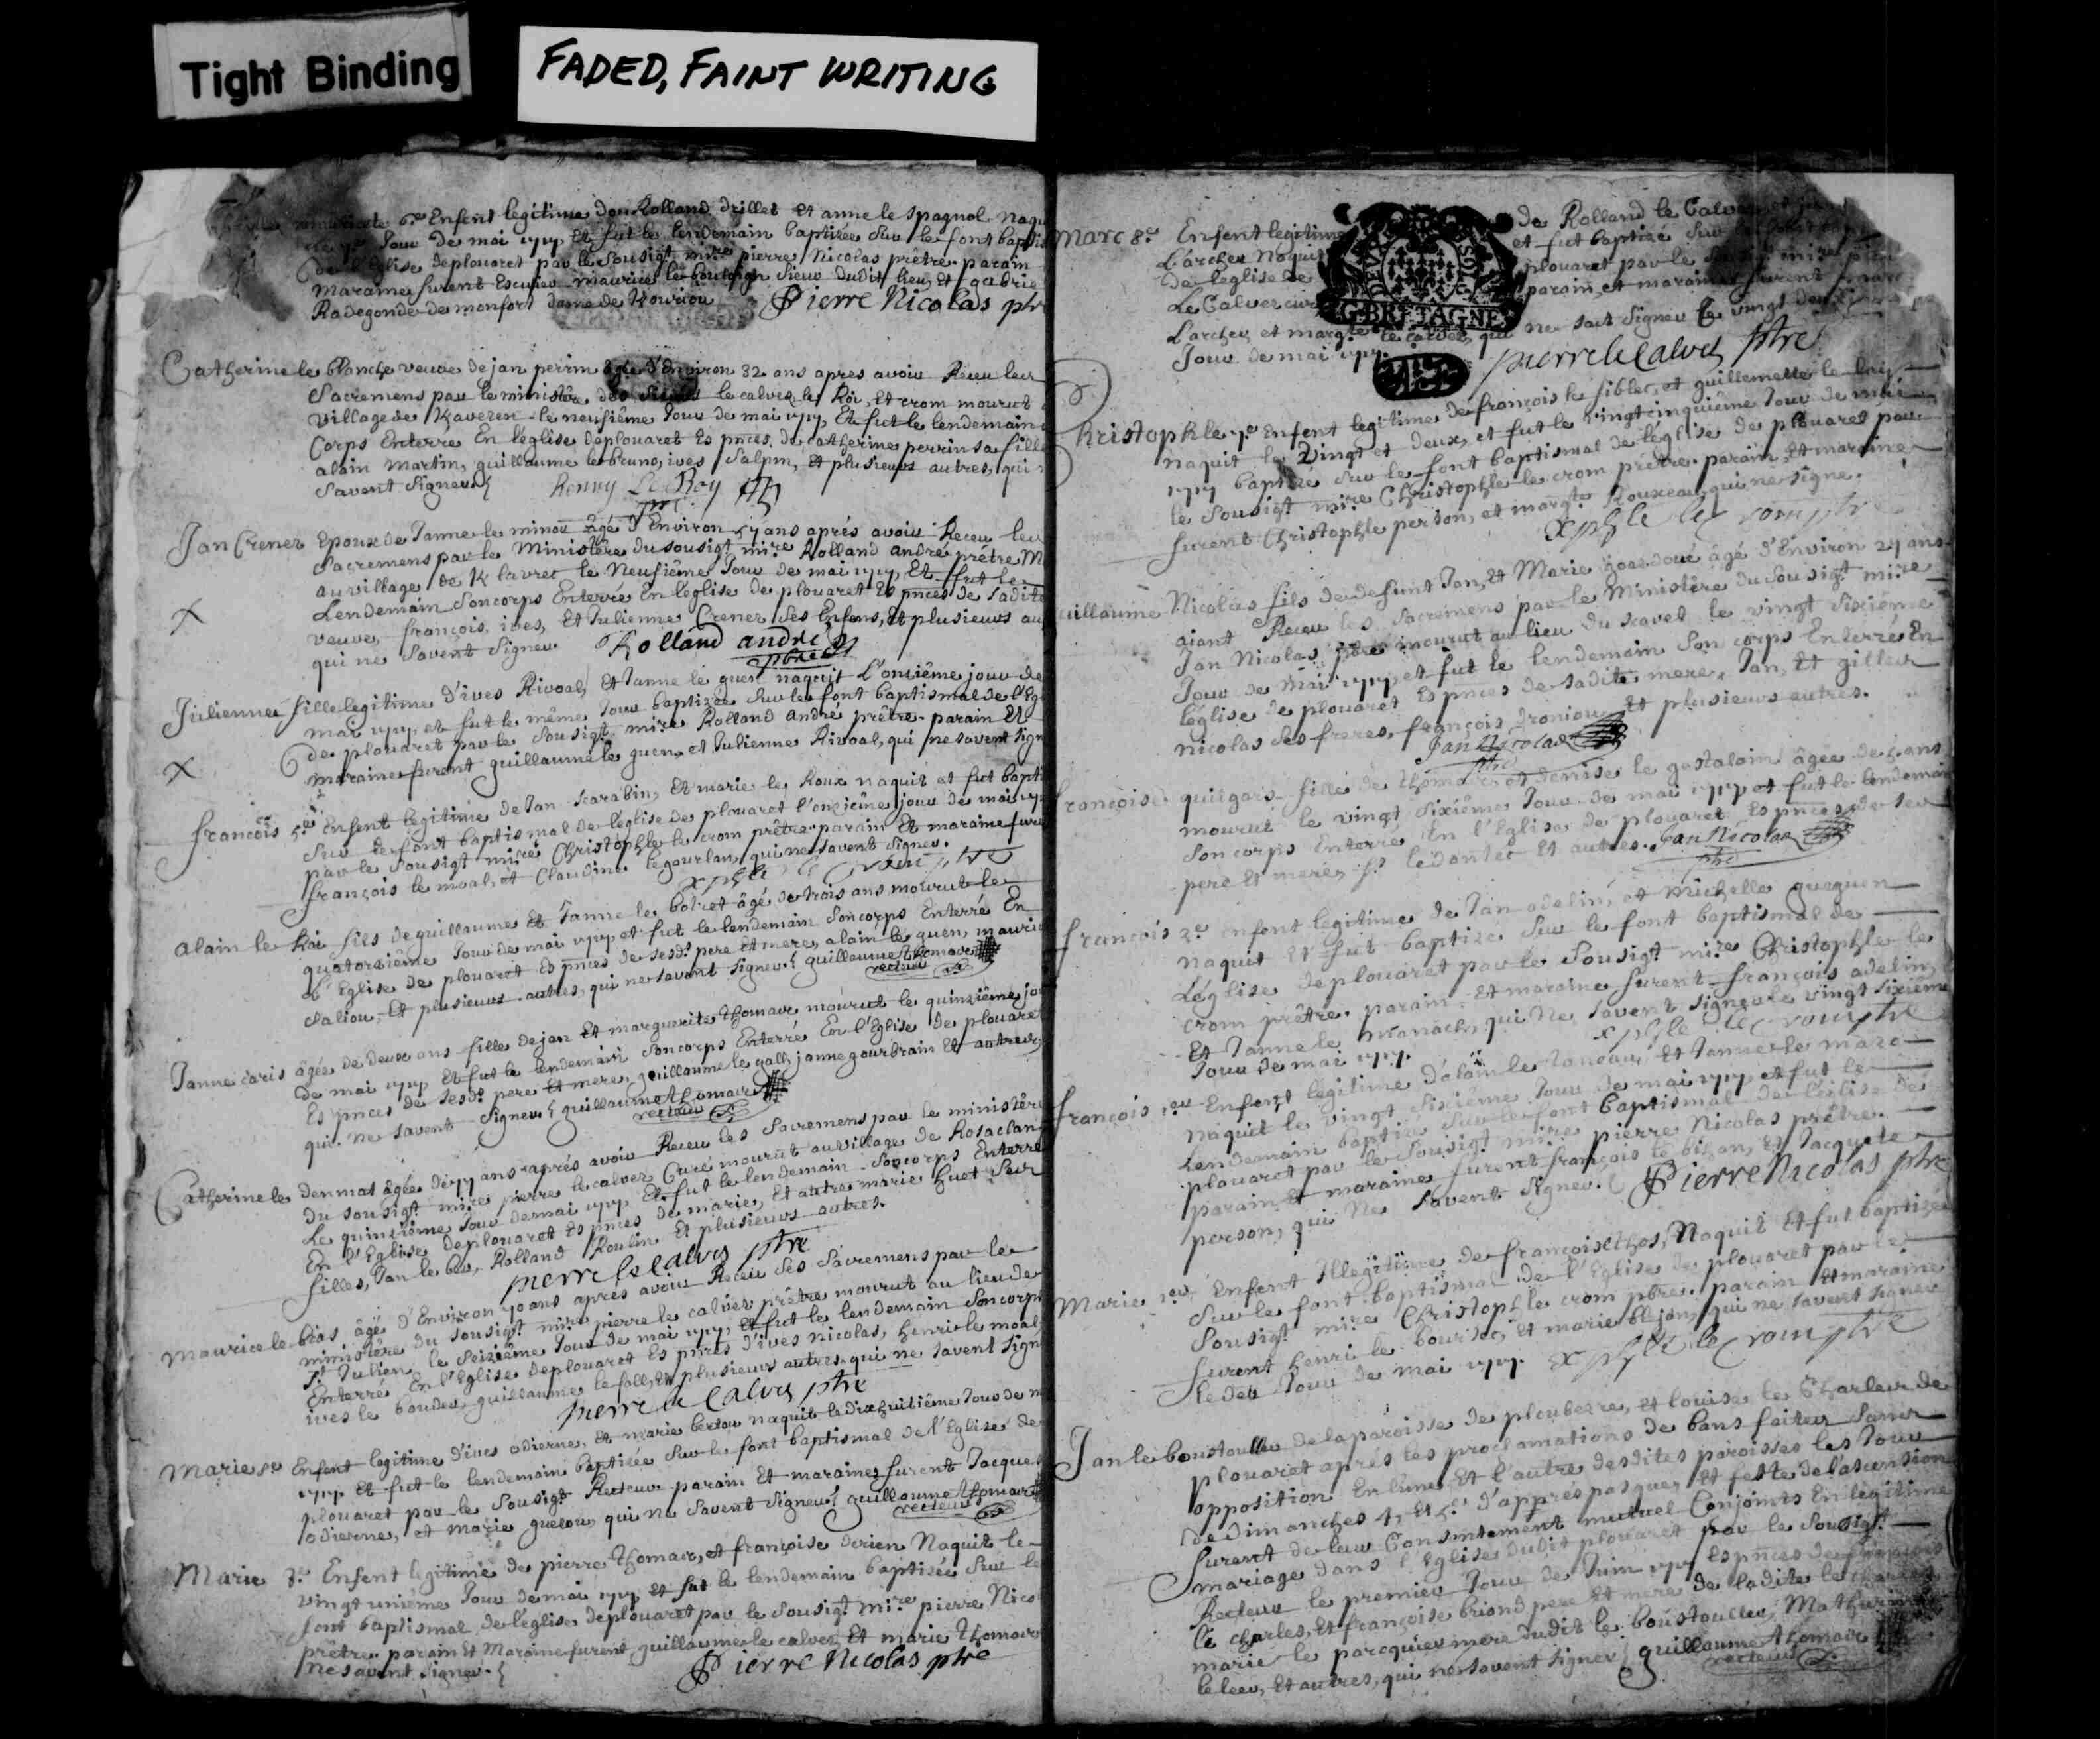 Tight Binding
FADED, FAINT WRITING
6.e Enfent legitime de Rolland Drillet Et anne le Spagnol naqu
Jour de mai 1717 Et fut le lendemain baptizée Sur le font bapti
de l'Eglise deplouaret par le Sousigt. mire pierre Nicolas prêtre. parain
Maraine furent Escuier maurice le Sieur dudit lieu, Et gabrie
Radegonde de monfort dame de Kouriou
Pierre Nicolas ptr
Catherine le Blonche veuve de jan perrin âgée d'Environ 32 ans apres avoir Receu les
Sacremens par le ministére des le calvez, le Roi, Et crom mourut
village de Kaveren le neufiême Jour de mai 1717 Et fut le lendemain
Corps Enterré En l'église deplouaret Es pnces de Catherine perrin sa fille
alain martin, guillaume le bruno, ives Salpin, Et plusieurs autres, qui
Savent Signer
Jan Crenez Epoux de Janne le minou âgé d'Environ 57 ans aprés avoir Receu les
Sacremens par le Ministére du sousigt mire Rolland andré prêtre M
au village de K lavrec le Neufiême Jour de mai 1717, Et fut le
Lendemain Son corps Enterré En l'église de plouaret Es pnces de Sadite
veuve, françois, ives, Et Julienne Crenez Ses Enfens, Et plusieurs au
qui ne Savent Signer
Rolland andre
pbre
Julienne fille legitime d'ives Rivoal, Et Janne le guen naquit L'onsiême jour de
mai 1717, et fut le même Jour baptizée Sur le font baptismal de l'Eg
de plouaret par le Sousigt. mire Rolland andré prêtre. parain Et
Maraine furent guillaume le guen, et Julienne Rivoal, qui ne savent Sign
françois 5.e Enfent legitime de Jan scarabin, Et marie le Roux naquit et fut bapti
Sur le font baptismal de l'église de plouaret l'onziême jour de mai 17
par le Sousigt mire Christophle le crom prêtre. parain Et maraine fure
françois le moal, et Claudine le gourlan, qui ne savent Signer.
xphle le crom ptre
alain le Roi fils de guillaume Et Janne le botret âgé de trois ans mourut le
quatorziême Jour de mai 1717 et fut le lendemain Son corps Enterré En
l'Eglise de plouaret Es pnces de sesdt. pere Et mere, alain le quen, mauric
Saliou, Et plusieurs autres, qui ne savent Signer
guillaume Thomair
recteur
Janne caris âgée de deux ans fille de jan Et marguerite thomair mourut le quinziême jo
de mai 1717 Et fut le lendemain Son corps Enterré En l'Eglise de plouaret
Es pnces de sesdt. pere Et mere, guillaume le gall, janne gourbrain Et autres,
qui ne savent Signer
guillaume Thomair
recteur
Catherine le Denmat âgée de 77 ans aprés avoir Receu les Sacremens par le ministére
du Sousigt mire pierre le calvez Curé mourut au village de Rosaclan
Le quinziême Jour de mai 1717 Et fut le lendemain Son corps Enterré
En l'Eglise deplouaret Es pnces de marie, Et autre marie huet Ses
filles, Jan le bev, Rolland Roulin Et plusieurs autres.
pierre le Calvez ptre
maurice le bras âgé d'Environ 70 ans apres avoir Receu Ses Sacremens par le
ministére du Sousigt mire pierre le calvez prêtre mourut au lieu de
St Julien le Seiziême Jour de mai 1717, Et fut le lendemain Son corps
Enterré En l'Eglise deplouaret Es pnces d'ives nicolas, henri le moal
ives le bouder guillaume le foll, Et plusieurs autres, qui ne savent Sign
pierre le Calvez ptre
Marie 8.e Enfent legitime d'ives adierne, Et marie bertou naquit le dixhuitiême Jour de m
1717 Et fut le lendemain baptizée Sur le font baptismal de l'Eglise de
plouaret par le Sousigt Recteur parain Et maraine furent Jacques
adierne, et marie quelou, qui ne Savent Signer
guillaume Thomair
recteur
Marie 3.e Enfent legitime de pierre Thomair, et françoise derien Naquit le
vingt uniême Jour de mai 1717 et fut le lendemain baptizée Sur le
font baptismal de l'église deplouaret par le Sousigt mire pierre Nico
prêtre parain Et Maraine furent guillaume le calvez Et marie thomair
ne savent Signer.
Pierre Nicolas ptre
Marc 8.e Enfent legitime de Rolland le Calvez
Larcher Naquit et fut baptizé Sur
de l'église de plouaret par le
Le Calvez curé parain, et maraine furent marc
Larcher, et margte le calvez, qui ne sait Signer Le vingt deux
Jour de mai 1717.
G. BRETAGNE
pierre le Calvez ptre
Christophle 7.e Enfent legitime de françois le Sibler, et guillemette le
naquit le Vingt et deux, et fut le vingt cinquiême Jour de mai
1717 baptizé Sur le font baptismal de l'église de plouaret par
le Sousigt mire Christophle le crom prêtre. parain Et maraine
furent Christophle person, et margte Rouxeau, qui ne signe.
xphle le crom ptre
Guillaume Nicolas fils de defunt Jan, Et Marie hoasdoué âgé d'Environ 27 ans
aiant Receu les Sacremens par le Ministére du Sousigt mire
Jan Nicolas pbre mourut au lieu du scavel le vingt Sixiême
Jour de mai 1717, et fut le lendemain Son corps Enterré En
l'église de plouaret Es pnces de Sadite mere, Jan, Et gilles
nicolas Ses freres, françois droniou, Et plusieurs autres.
Jan Nicolas
ptre
françoise quilgars fille de thomas et denise le gustaloin âgée de 5 ans
mourut le vingt Sixiême Jour de mai 1717 et fut le lendemain
Son corps Enterré En l'Eglise de plouaret Es pnces de ses
pere Et mere, le dantec Et autres.
Jan Nicolas
ptre
françois 2.e Enfent legitime de Jan adelin, et Michelle gueguen
naquit Et fut baptizé Sur le font baptismal de
L'église deplouaret par le Sousigt mire Christophle le
crom prêtre. parain Et maraine furent françois adelin,
Et Janne le manach, qui Ne savent Signer le vingt Sixiême
Jour de mai 1717.
xphle le crom ptre
françois 1.er Enfent legitime d'alain le Janeau, Et Janne le maro
Naquit le vingt Sixiême Jour de mai 1717 et fut le
Lendemain baptizé Sur le font baptismal de l'église de
plouaret par le Sousigt mire pierre Nicolas prêtre.
parain, Et maraine furent françois le bihan, Et Jacquete
person, qui Ne savent Signer.
Pierre Nicolas ptre
Marie 1.er Enfent Illegitime de françoise thos, Naquit Et fut baptizée
Sur le font baptismal de l'Eglise de plouaret par le
Sousigt mire Christophle crom pbre. parain Et maraine
furent henri le bourdec, Et marie blejan, qui ne savent signer
le der Jour de mai 1717.
xphle le crom ptre
Jan le boustouller de la paroisse de ploubezre, et louise le Charles de
plouaret aprés les proclamations de bans faites Sans
opposition En l'une, Et l'autre desdites paroisses les Jours
de dimanches 4, Et 5.e d'apprés pasques, Et feste de l'ascension
furent de leur Consentement mutuel Conjoints En legitime
mariage dans l'Eglise dudit plouaret par le Sousigt
Recteur le premier Jour de Juin 1717 Es pnces de
le charles, Et françoise briand pere Et mere de ladite le charles
marie le parcquier mere dudit le boustouller, Mathurin
le leer, Et autres, qui ne savent signer
guillaume Thomair
recteur